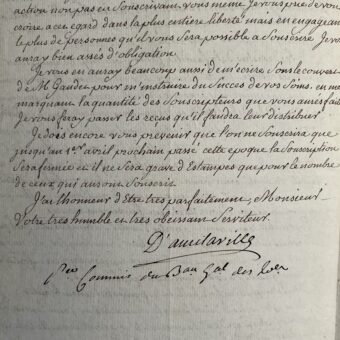 action non pas en Souscrivant vous meme. Je vous prie de vous
croire a cet egard dans la plus entiere liberté mais en engageant
le plus de personnes qu'il vous Sera possible a Souscrire Je vous
auray bien assés d'obligation.
Je vous en auray beaucoup aussi de m'ecrire Sous le couvert
de M Gaudée pour m'instruire du Succés de vos Soins, en me
marquant la quantité des Souscripteurs que vous aurés fait
Je vous feray passer les recus qu'il faudra leur distribuer
Je dois encore vous prevenir que l'on ne Souscrira que
jusqu'au 1er avril prochain passé cette epoque la Souscription
Sera fermée et il ne Sera gravé d'Estampes que pour le nombre
de ceux qui auront Souscrit
J'ai l'honneur d'Etre tres parfaitement, Monsieur
Votre tres humble et tres obeissant Serviteur.
Per Commis du Bau Gal des